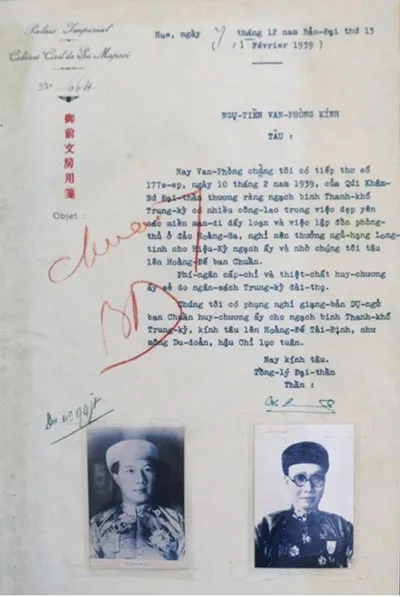 Palais Impérial
Cabinet Civil de Sa Majesté
No 66H
御前文房用箋
Objet :
Hue, ngày tháng 12 nam Bảo-Đại thứ 13
( Février 1939 )
NGỰ-TIỀN VAN-PHÒNG KÍNH
TÂU :
Nay Van-Phòng chúng tôi có tiếp thơ số
177s-sp, ngày 10 tháng 2 nam 1939, của Qúi Khâm-
Sứ Đại-thần thương rằng ngạch binh Thanh-khố
Trung-kỳ có nhiều công-lao trong việc dẹp yên
các miền man-di dấy loạn và việc lập đồn phòng-
thủ ở đảo Hoàng-Sa, nghỉ nên thưởng ngũ-hạng Long-
tinh cho Hiệu-Kỳ ngạch ấy và nhờ chúng tôi tâu
lên Hoàng-Đế ban Chuẩn.
Phí-ngân cấp-chỉ và thiệt-chất huy-chương
ấy sẽ do ngân-sách Trung-kỳ đài-thọ.
Chúng tôi có phụng nghỉ giạng-bản Dụ-ngữ
ban Chuẩn huy-chương ấy cho ngạch binh Thanh-khố
Trung-kỳ, kính tâu lên Hoàng-Đế Tài-Định, như
mông Du-doản, hậu Chỉ lục tuân.
Nay kính tâu.
Tổng-lý Đại-thần
Thần :
Chuẩn
BĐ